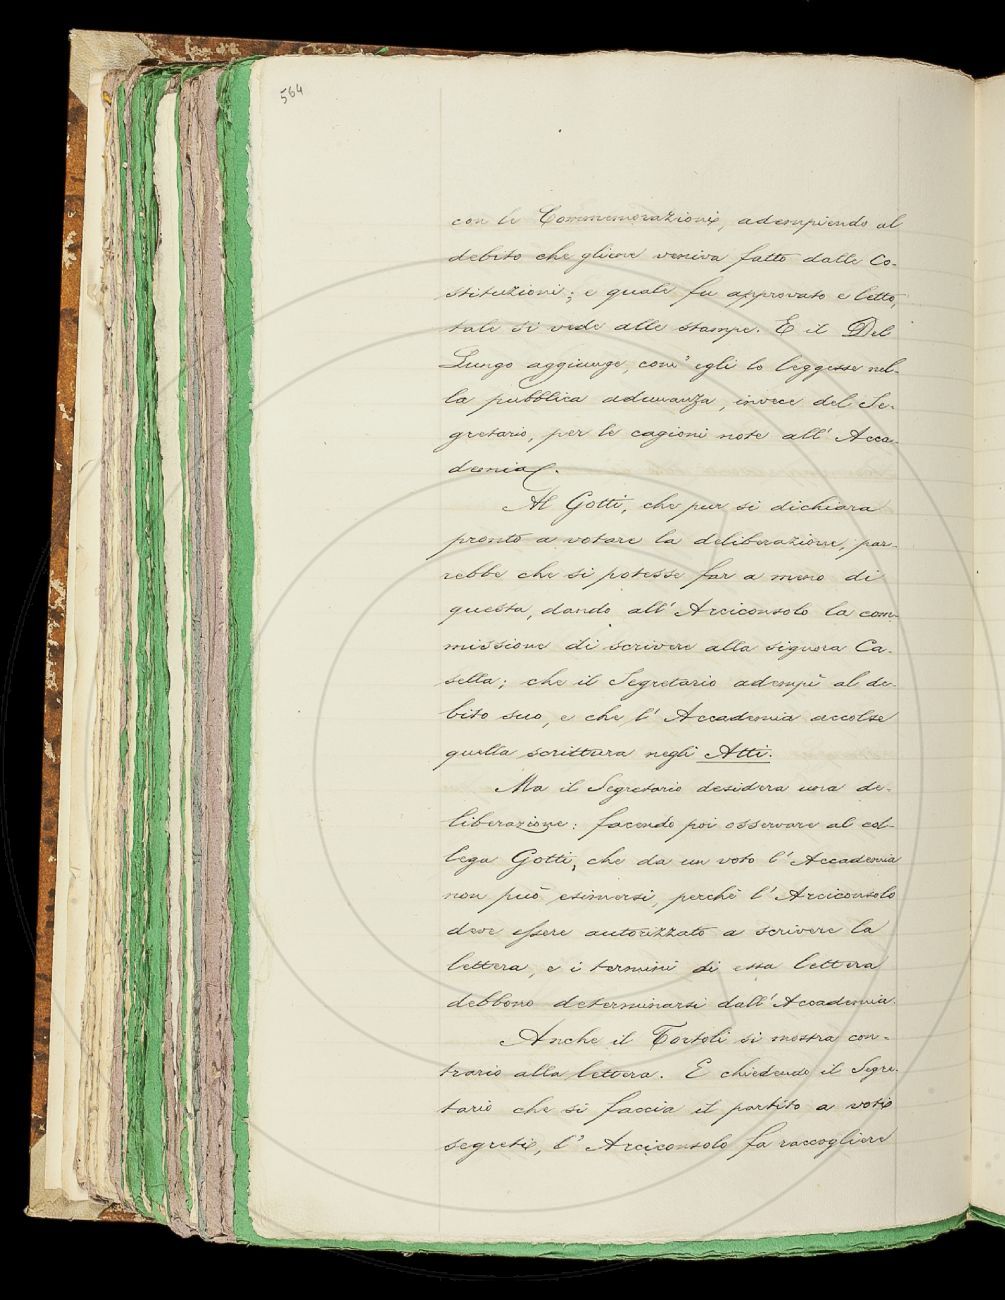 564
con le Commemorazioni, adempiendo al
debito che gliene veniva fatto dalle Co-
stituzioni; e quale fu approvato e letto,
tale si vede alle stampe. E il Del
Lungo aggiunge, com' egli lo leggesse nel-
la pubblica adunanza, invece del Se-
gretario, per le cagioni note all' Acca-
demia.
Al Gotti, che pur si dichiara
pronto a votare la deliberazione, par-
rebbe che si potesse far a meno di
questa, dando all' Arciconsolo la com-
missione di scrivere alla signora Ca-
sella; che il Segretario adempì al de-
bito suo, e che l' Accademia accolse
quella scrittura negli Atti.
Ma il Segretario desidera una de-
liberazione: facendo poi osservare al col-
lega Gotti, che da un voto l' Accademia
non può esimersi, perchè l' Arciconsolo
deve essere autorizzato a scrivere la
lettera, e i termini di essa lettera
debbono determinarsi dall' Accademia.
Anche il Tortoli si mostra con-
trario alla lettera. E chiedendo il Segre-
tario che si faccia il partito a voti
segreti, l' Arciconsolo fa raccogliere